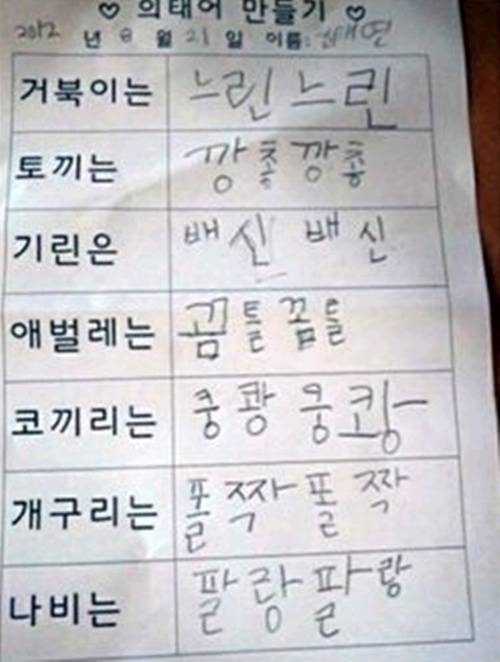 ♡ 의태어 만들기 ♡
2012 년 8 월 21 일 이름: 태연
거북이는 느린 느린
토끼는 깡총 깡총
기린은 배신 배신
애벌레는 꿈틀 꿈틀
코끼리는 쿵쾅 쿵쾅
개구리는 폴짝 폴짝
나비는 팔랑 팔랑